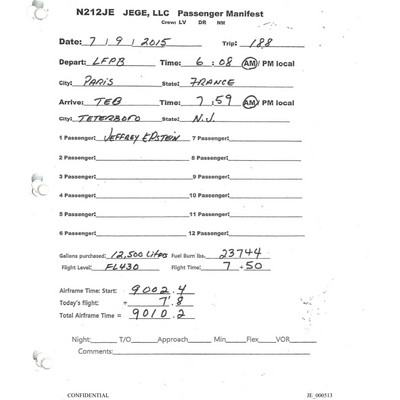 N212JE JEGE, LLC Passenger Manifest
Crew: LV DR NM
Date: 7 / 9 / 2015 Trip: 188
Depart: LFPB Time: 6 : 08 AM/ PM local
City: PARIS State: FRANCE
Arrive: TEB Time: 7 : 59 AM/ PM local
City: TETERBORO State: N.J.
1 Passenger: JEFFREY EPSTEIN 7 Passenger:
2 Passenger: 8 Passenger:
3 Passenger: 9 Passenger:
4 Passenger: 10 Passenger:
5 Passenger: 11 Passenger:
6 Passenger: 12 Passenger:
Gallons purchased: 12,500 Litres Fuel Burn lbs. 23744
Flight Level: FL430 Flight Time: 7 + 50
Airframe Time: Start: 9002.4
Today's flight: + 7.8
Total Airframe Time = 9010.2
Night: T/O Approach Min Flex VOR
Comments:
CONFIDENTIAL JE_000513